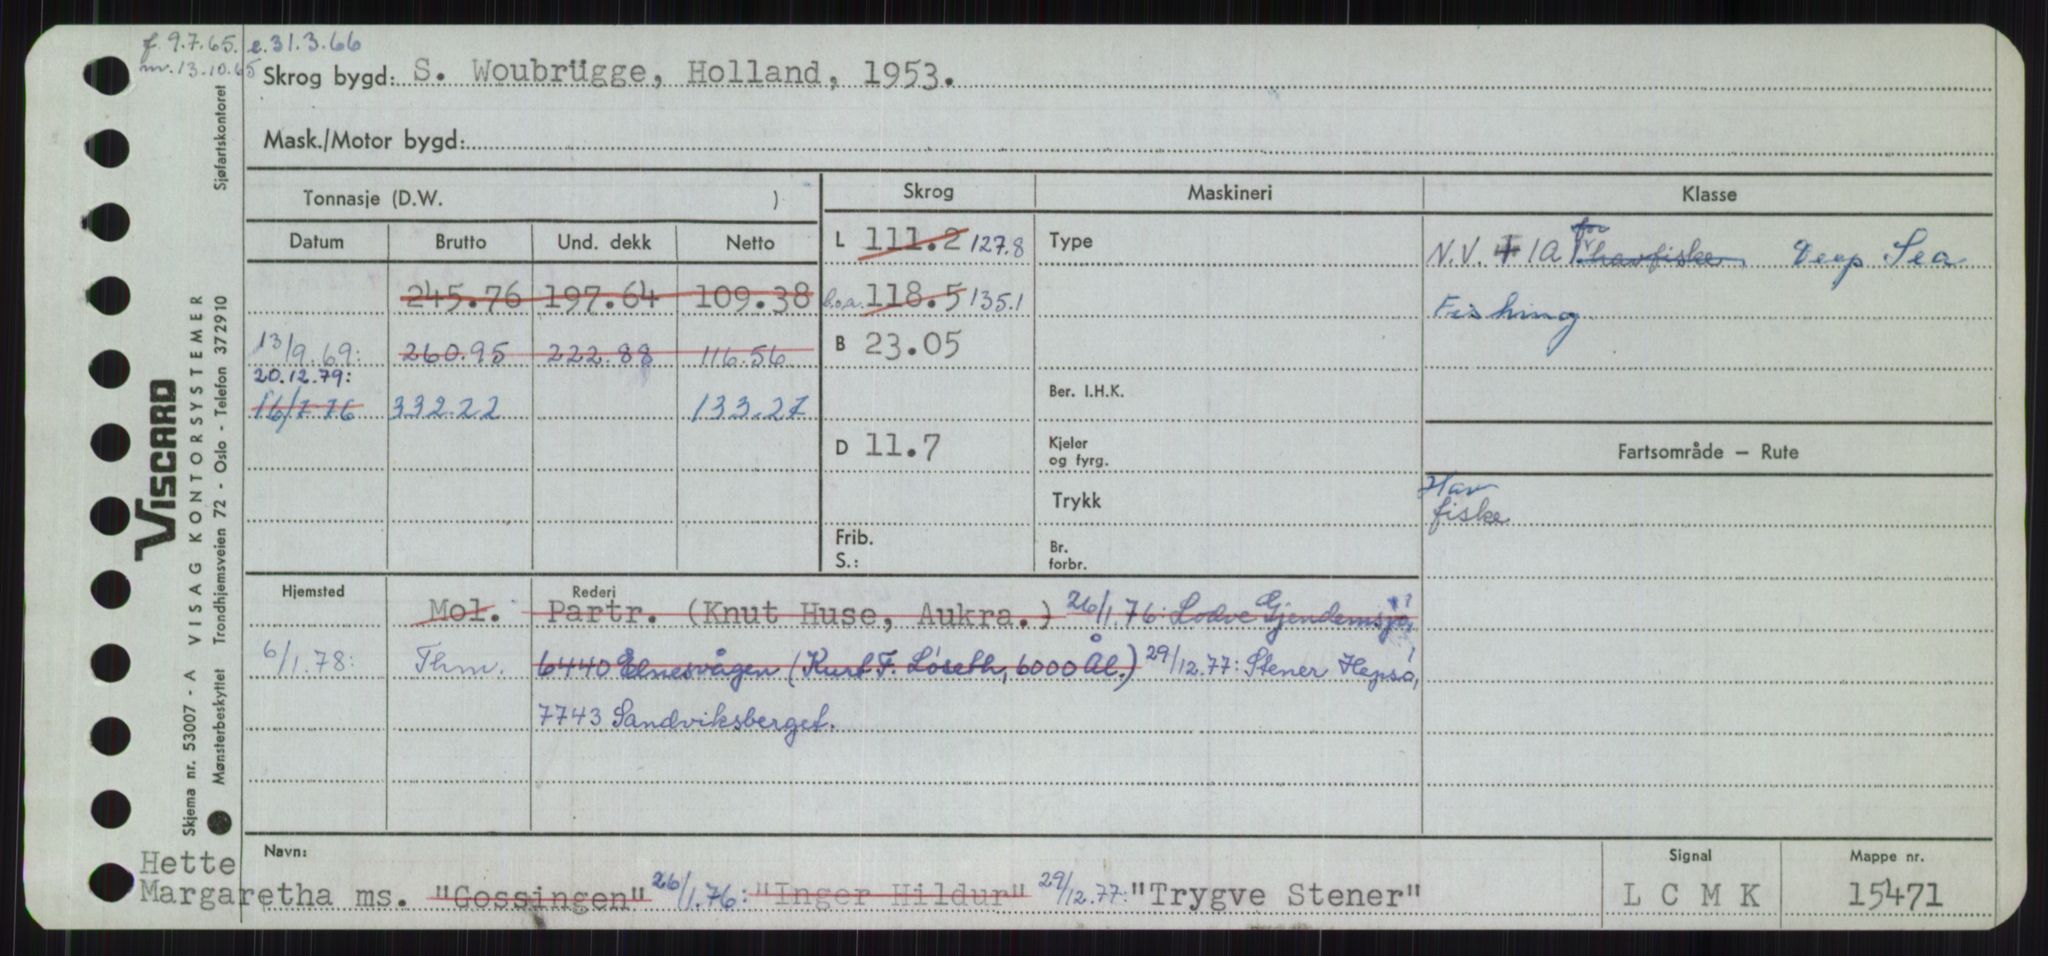 f. 9.7.65. e. 31.3.66
nv. 13.10.65
Skrog bygd: S. Woubrügge, Holland, 1953.
Mask./Motor bygd:
Tonnasje (D.W. )
Skrog
Maskineri
Klasse
Datum Brutto Und. dekk Netto
L 111.2 127.8
Type
N.V. 1A for havfiske Deep Sea
245.76 197.64 109.38
b.o.a. 118.5 135.1
Fishing
13/9.69: 260.95 222.88 116.56
B 23.05
20.12.79:
16/7 76 332.22 133.27
Ber. I.H.K.
D 11.7
Kjeler
og fyrg.
Fartsområde – Rute
Trykk
Hav
fiske
Frib.
S.:
Br.
forbr.
Hjemsted
Rederi
Mol. Partr. (Knut Huse, Aukra.) 26/1.76: Lodve Gjendemsjø,
6/1.78: Thm. 6440 Elnesvågen (Kurt F. Løseth, 6000 Ål.) 29/12.77: Stener Hepsø,
7743 Sandviksberget.
Navn:
Hette
Margaretha ms. "Gossingen" 26/1.76: "Inger Hildur" 29/12.77: "Trygve Stener"
Signal
L C M K
Mappe nr.
15471
VISCARD
Skjema nr. 53007 - A VISAG KONTORSYSTEMER
Mønsterbeskyttet Trondhjemsveien 72 - Oslo - Telefon 372910 Sjøfartskontoret